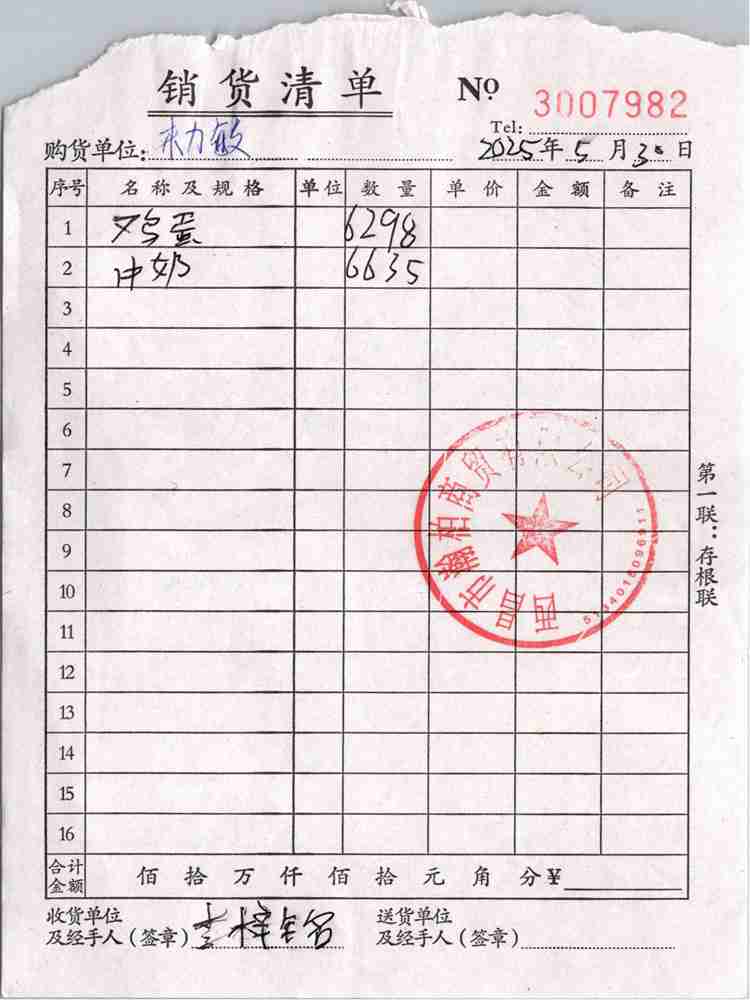 销货清单 Nº 3007982
Tel:
购货单位: 米力敏 2025年5月30日
序号 名称及规格 单位 数量 单价 金额 备注
1 鸡蛋 6298
2 牛奶 6635
3
4
5
6
7
8
9
10
11
12
13
14
15
16
合计金额 佰拾万仟佰拾元角分¥
收货单位
及经手人(签章) 李梓
送货单位
及经手人(签章)
第一联:存根联
西昌市瀚柏商贸有限公司